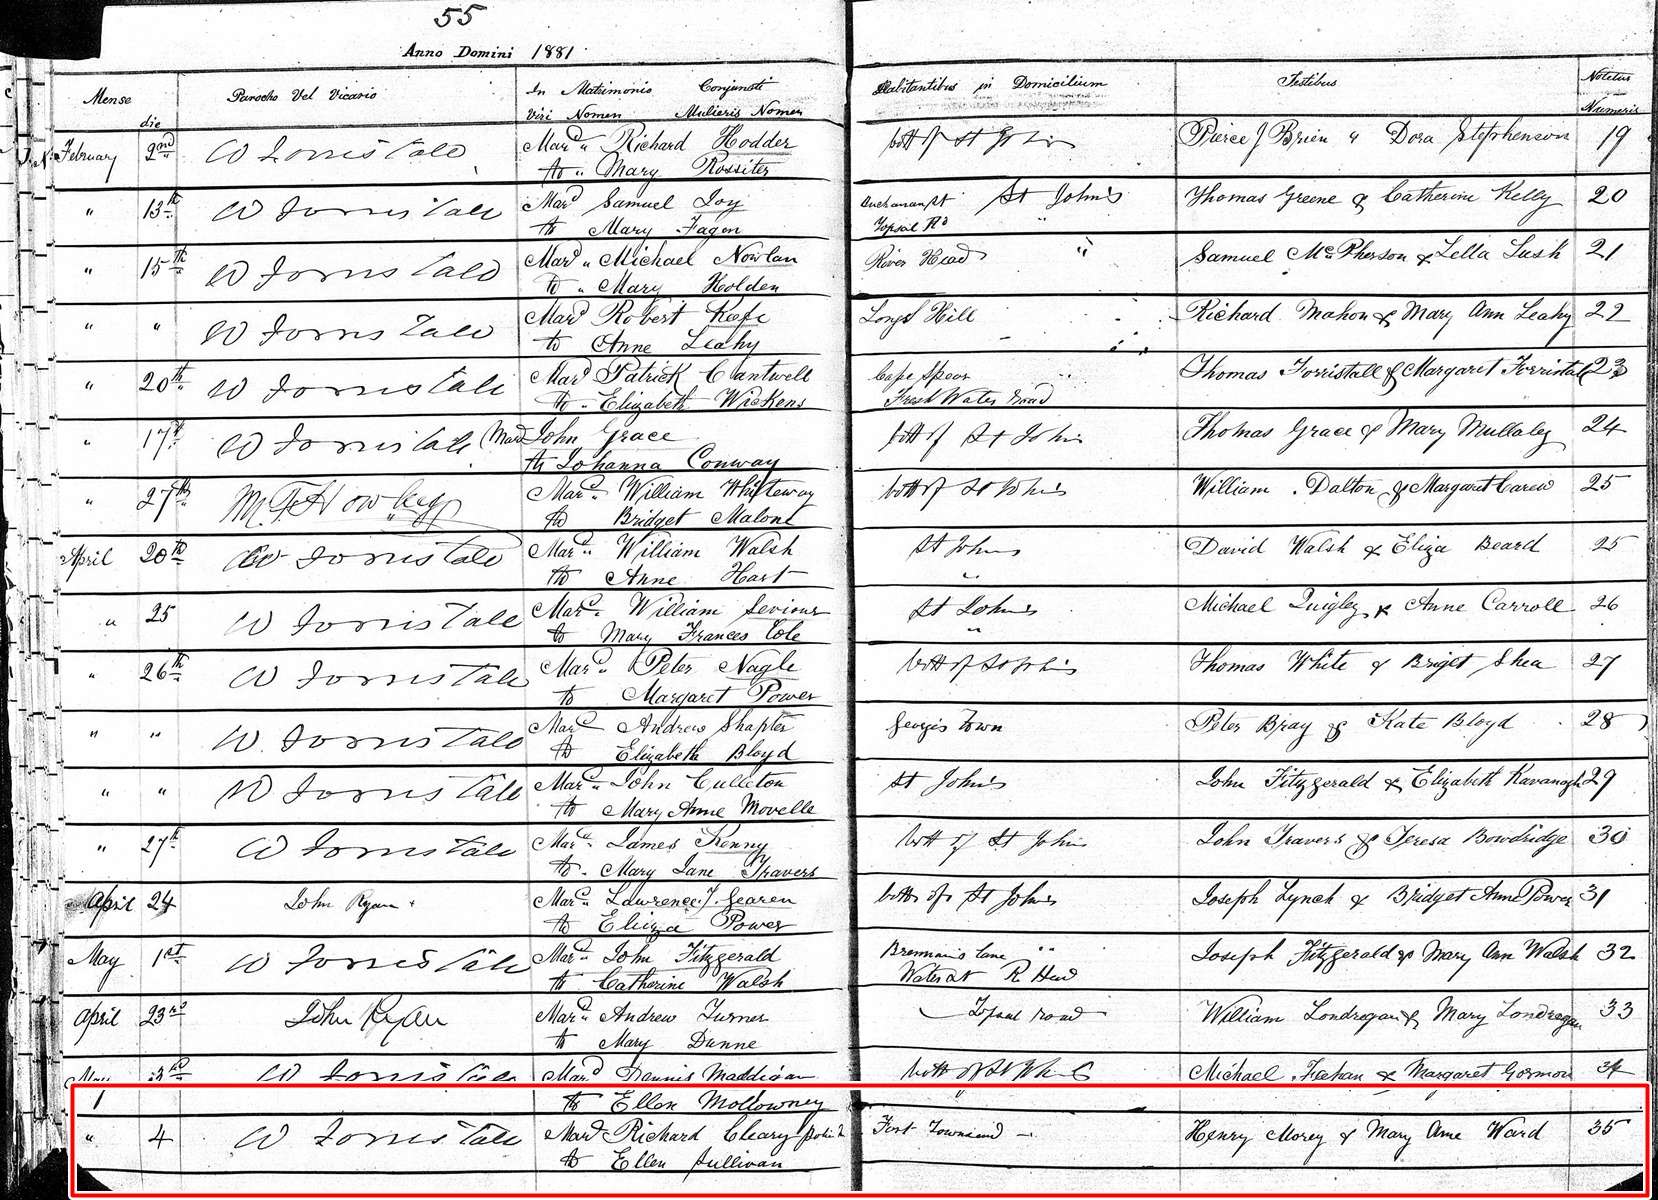 55
Anno Domini 1881
Mense die Parocho Vel Vicario In Matrimonio Conjuncti Habitantibus in Domicilium Testibus Notetur
Viri Nomen Mulieris Nomen Numeris
February 2nd W Forristall Mard " Richard Hodder both of St John's Pierce J Brien " Dora Stephenson 19
to " Mary Rossiter
" 13th W Forristall Mard Samuel Joy Buchanan st St John's Thomas Greene & Catherine Kelly 20
to Mary Fagon Topsal Rd "
" 15th W Forristall Mard " Michael Nowlan River Head " Samuel McPherson & Lella Lush 21
to " Mary Holden
" " W Forristall Mard Robert Kiefe Longs Hill Richard Mahon & Mary Ann Leahy 22
to Anne Leahy
" 20th W Forristall Mard Patrick Cantwell Cape Spear Thomas Forristall & Margaret Forristall 23
to - Elizabeth Wickens Fresh Water road
" 17th W Forristall Mard John Grace both of St John's Thomas Grace & Mary Mullaley 24
to Johanna Conway
" 27th M. F. Howley Mard William Whiteway both of St John's William Dalton & Margaret Carew 25
to Bridget Malone
April 20th W Forristall Mard " William Walsh St Johns David Walsh & Eliza Beard 25
to Anne Hart "
" 25 W Forristall Mard William Seviour St John's Michael Quigley & Anne Carroll 26
to Mary Frances Cole "
" 26th W Forristall Mard " Peter Nagle both of St Johns Thomas White & Briget Shea 27
to Margaret Power
" " W. Forristall Mard Andrew Shapter Georges Town Peter Bray & Kate Bloyd 28
to Elizabeth Bloyd
" " W Forristall Mard " John Culleton St John's John Fitzgerald & Elizabeth Kavanagh 29
to Mary Anne Movelle
" 27th W Forristall Mard James Kenny both of St John's John Travers & Teresa Bowdridge 30
to - Mary Jane Travers
April 24 John Ryan Mard Lawrence J. Gearen both of St John's Joseph Lynch & Bridget Anne Power 31
to Eliza Power
May 1st W Forristall Mard John Fitzgerald Brennan's Lane " Joseph Fitzgerald & Mary Ann Walsh 32
to Catherine Walsh Water st R Head
April 23rd John Ryan Mard Andrew Turner Topsal road William Londregan & Mary Londregan 33
to Mary Dunne
May 3rd W Forristall Mard Dennis Maddigan both of St John's Michael Feehan & Margaret Gorman 34
to Ellen Mollowney
" 4 W Forristall Mard Richard Cleary Fort Townsend Henry Morey & Mary Ann Ward 35
to Ellen Sullivan